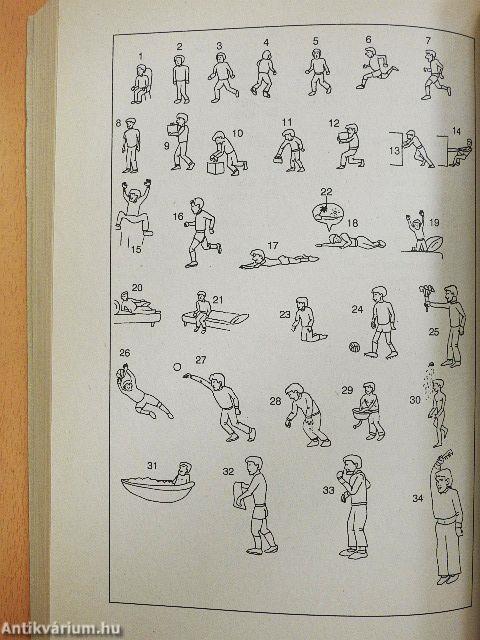 1 2 3 4 5 6 7
8 9 10 11 12 13 14
15 16 17 18 19 22
20 21 23 24 25
26 27 28 29 30
31 32 33 34
Antikvárium.hu